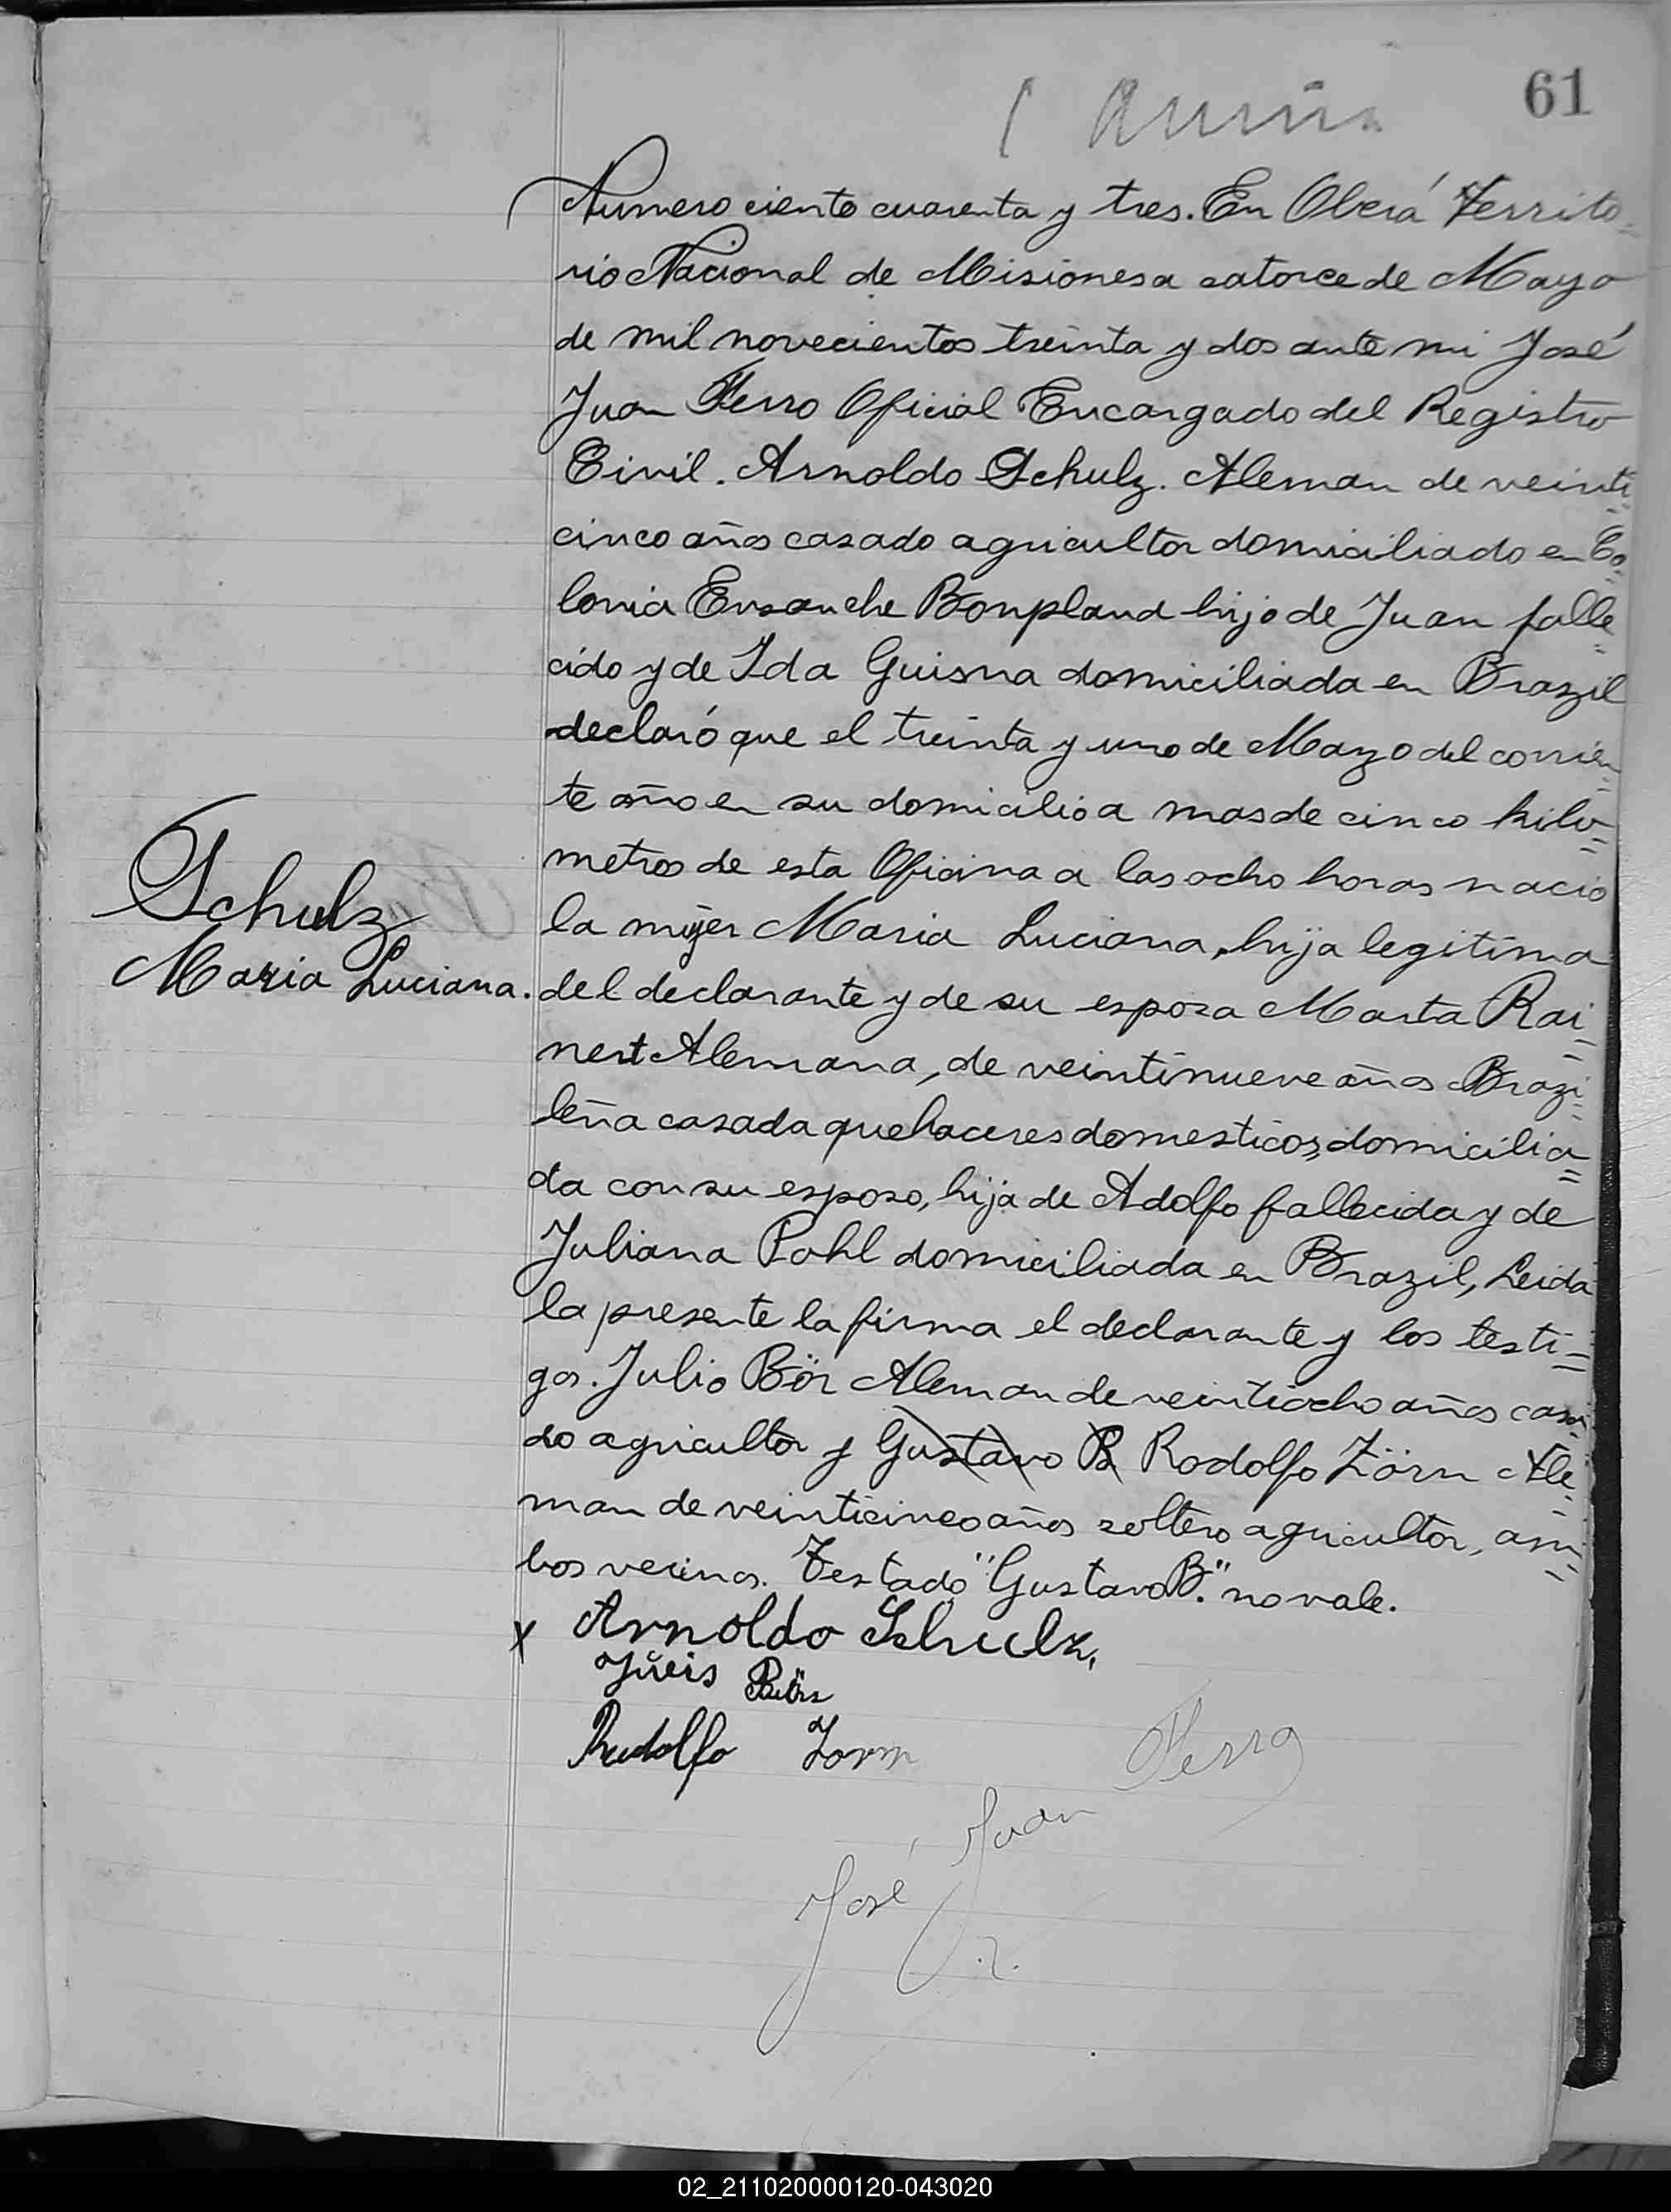 61
Numero ciento cuarenta y tres. En Oberá Territo-
rio Nacional de Misiones a catorce de Mayo
de mil novecientos treinta y dos ante mi José
Juan Ferro Oficial Encargado del Registro
Civil. Arnoldo Schulz. Aleman de veinti
cinco años casado agricultor domiciliado en Co-
lonia Ensanche Bonpland hijo de Juan falle-
cido y de Ida Guisna domiciliada en Brazil
declaró que el treinta y uno de Marzo del corrien-
te año en su domicilio a mas de cinco kilo-
metros de esta Oficina a las ocho horas nacio
la mujer Maria Luciana, hija legitima
Schulz
Maria Luciana.
del declarante y de su esposa Marta Rai-
nert Alemana, de veintinueve años Brazi-
leña casada quehaceres domesticos, domicilia-
da con su esposo, hija de Adolfo fallecida y de
Juliana Pohl domiciliada en Brazil, Leida
la presente la firma el declarante y los testi-
gos. Julio Bör Aleman de veintiocho años casa-
do agricultor y Gustavo B Rodolfo Zörn Ale-
man de veinticinco años soltero agricultor, am-
bos vecinos. Testado "Gustavo B." no vale.
x Arnoldo Schulz,
Bör
Rudolfo Zorn
José Juan Ferro
02_211020000120-043020